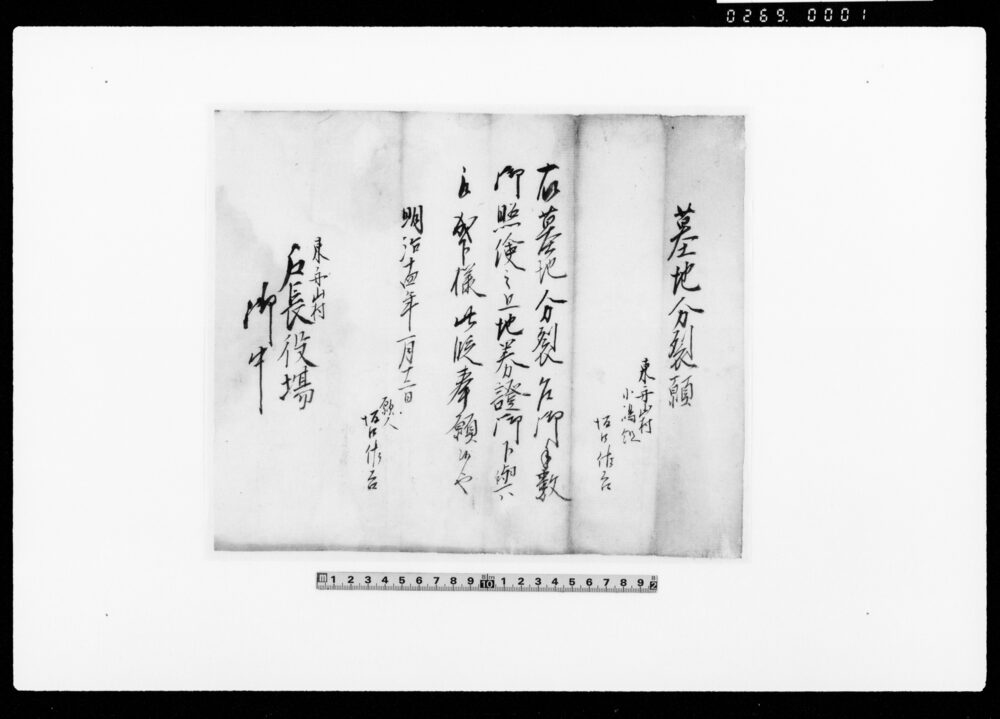 0269. 0001
墓地分裂願
東舟山村
坂口佐
右墓地分裂ニ付御手数
御照倹之上地券證御下與
被下様此段奉願候也
明治十四年一月十二日
願人
坂口佐
東舟山村
戸長役場
御中
1 2 3 4 5 6 7 8 9 10 1 2 3 4 5 6 7 8 9 2